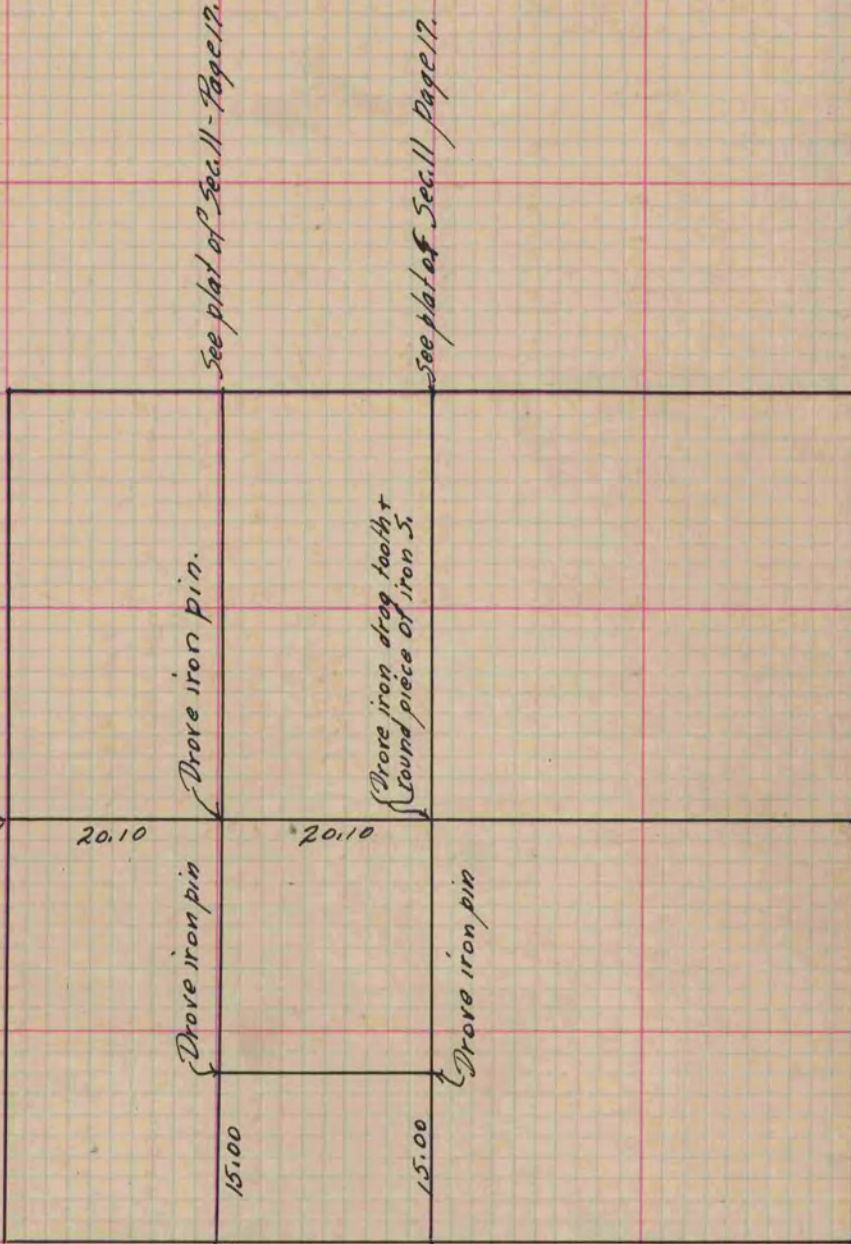 See plat of Sec. 11 - Page 17.
See plat of Sec. 11 page 17.
Drove iron pin.
Drove iron drag tooth +
round piece of iron S.
20.10
20.10
Drove iron pin
Drove iron pin
15.00
15.00